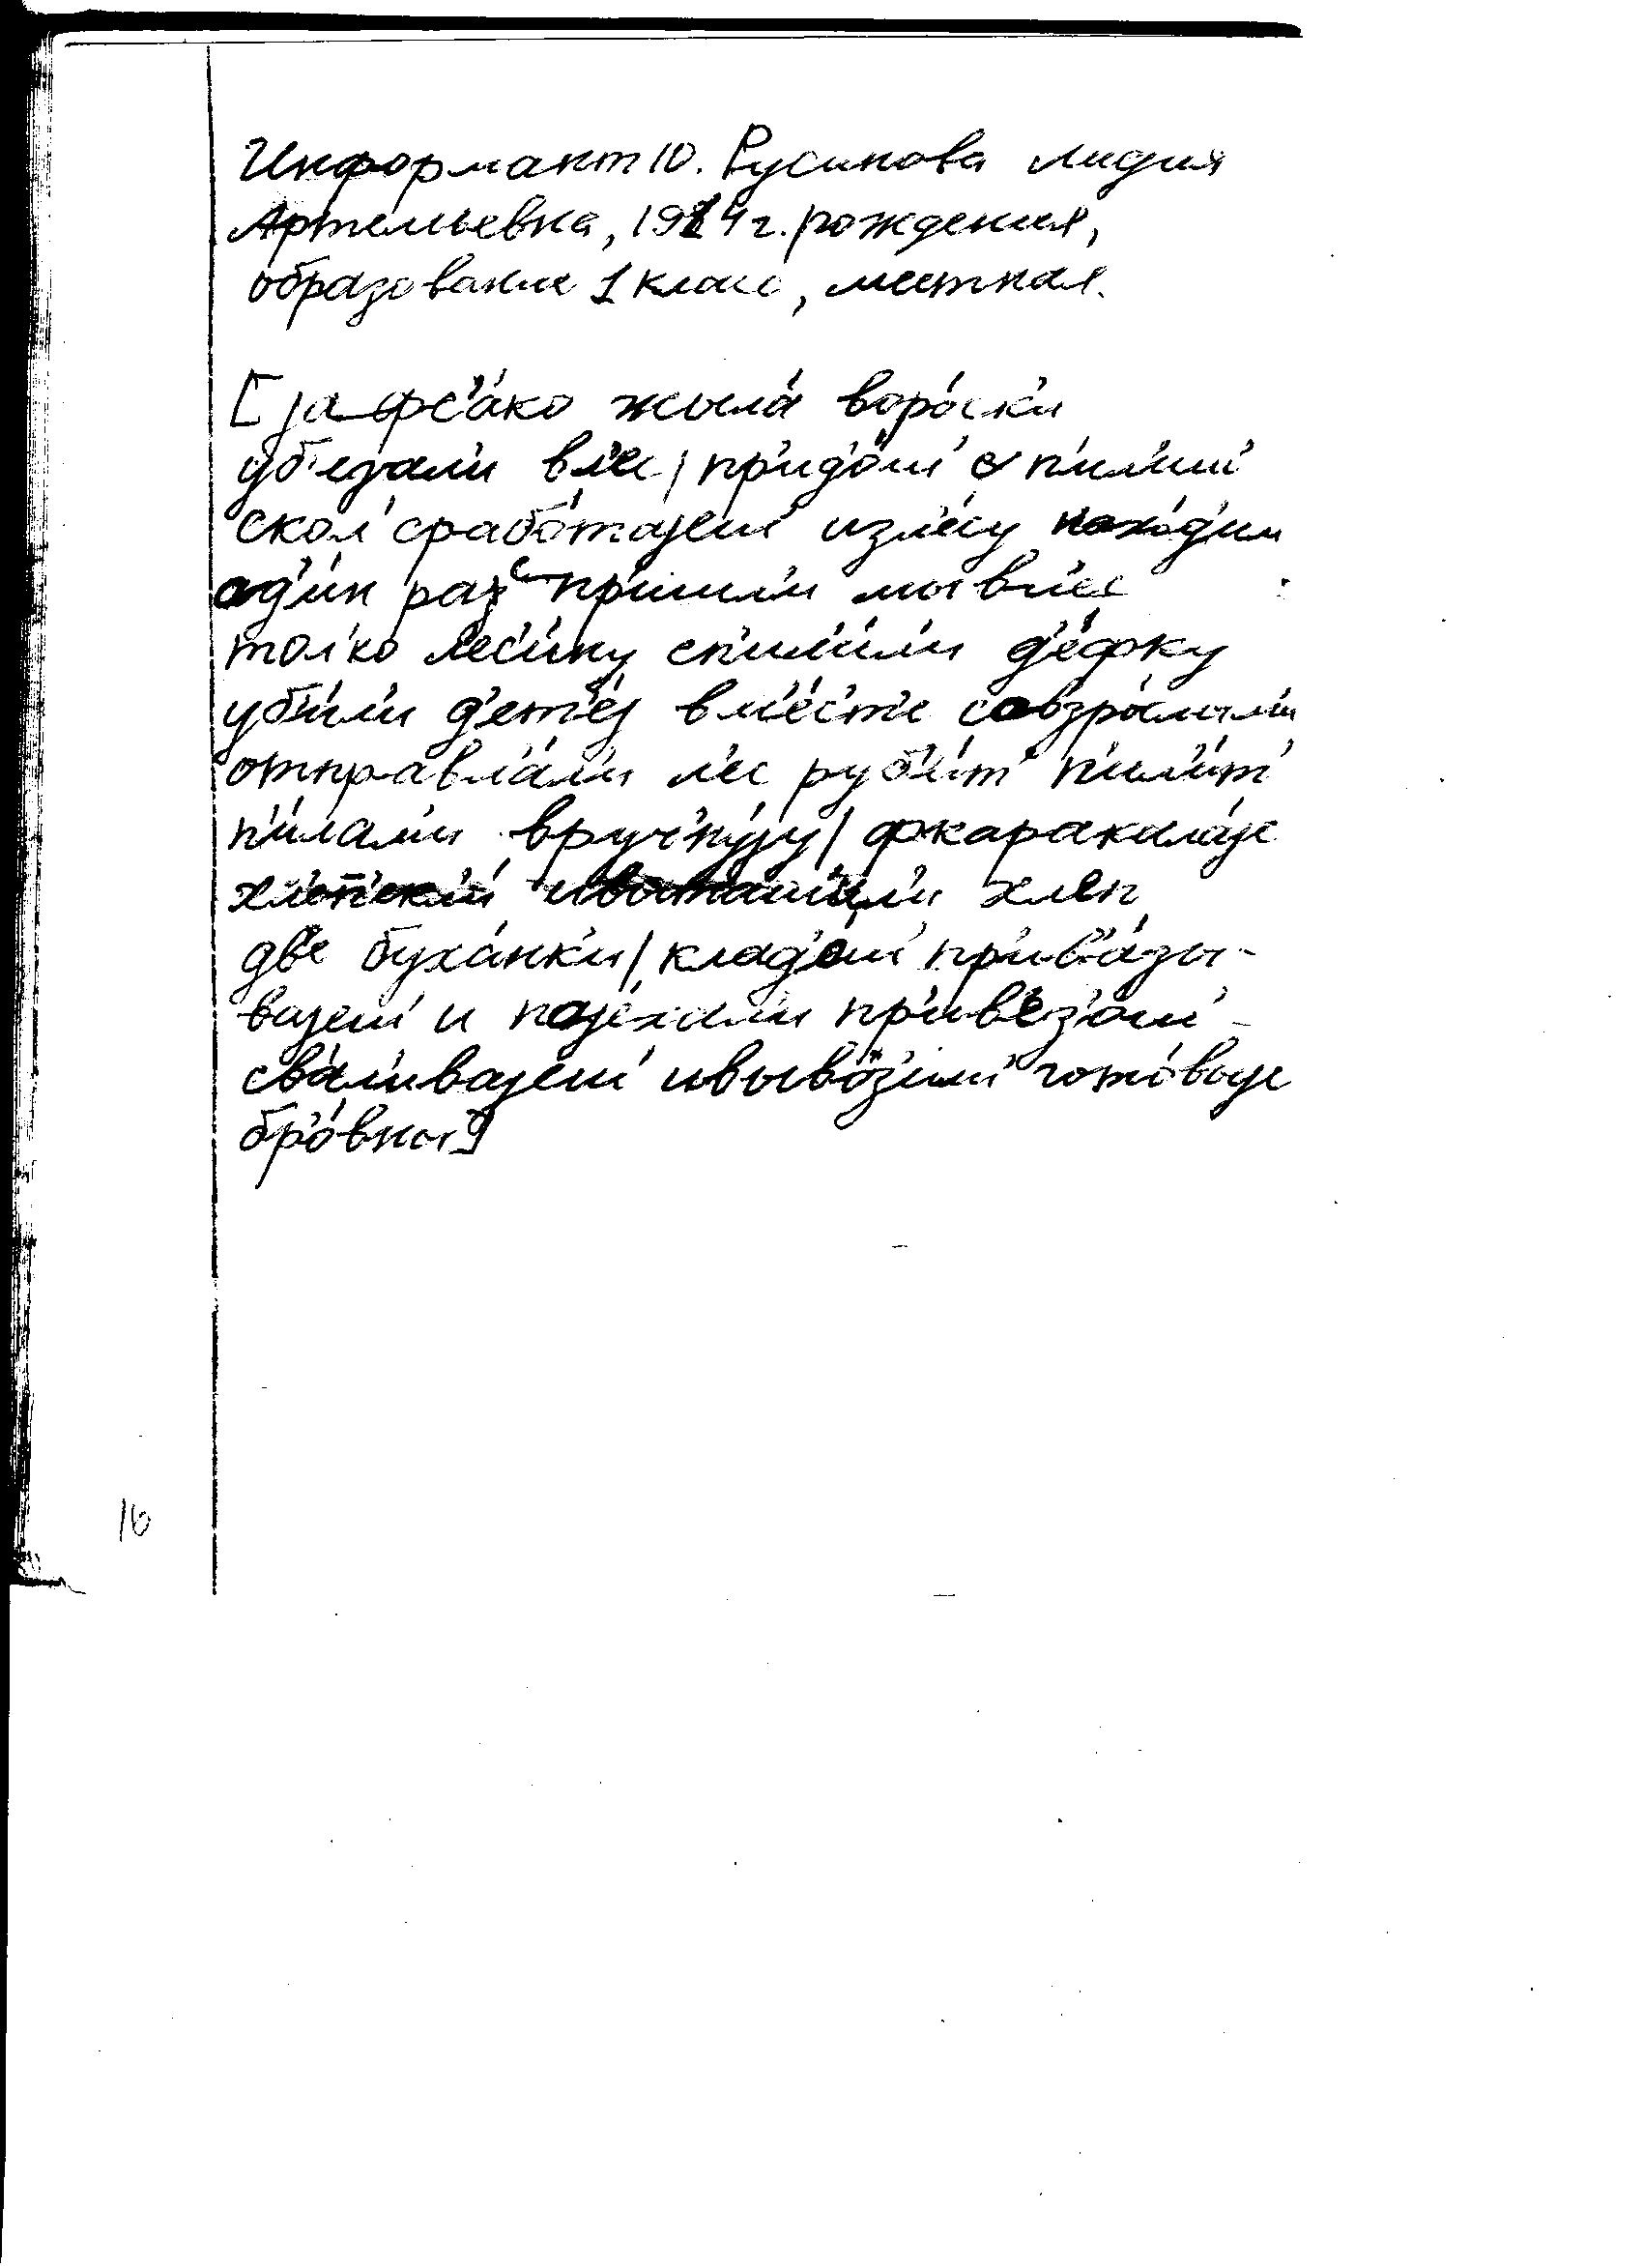 Информант 10. Русинова Лидия
Артемьевна, 1924 г. рождения,
образование 1 класс, местная.
[jа фс'а́ко жыла́ воро́ски
уб'егали вл'ес / при́д'ош с п'ил'ит'
скол' сработаjеш изл'е́су
од'и́н раз пришли мы вл'ес
тол'ко лес'и́ну сп'ил'и́ли д'е́фку
уб'и́ли д'ет'е́j вм'е́ст'е совзро́слыми
отправл'а́ли л'ес руб'и́т' п'ил'и́т'
п'и́лам'и вруч'ну́jу /
хлеп
дв'е буха́нк'и / клад'о́ш прив'а́зы-
ваjеш и поjе́хали прив'ез'о́ш
сва́л'иваjеш ивыво́з'иш гото́выjе
бр'о́вны]
16